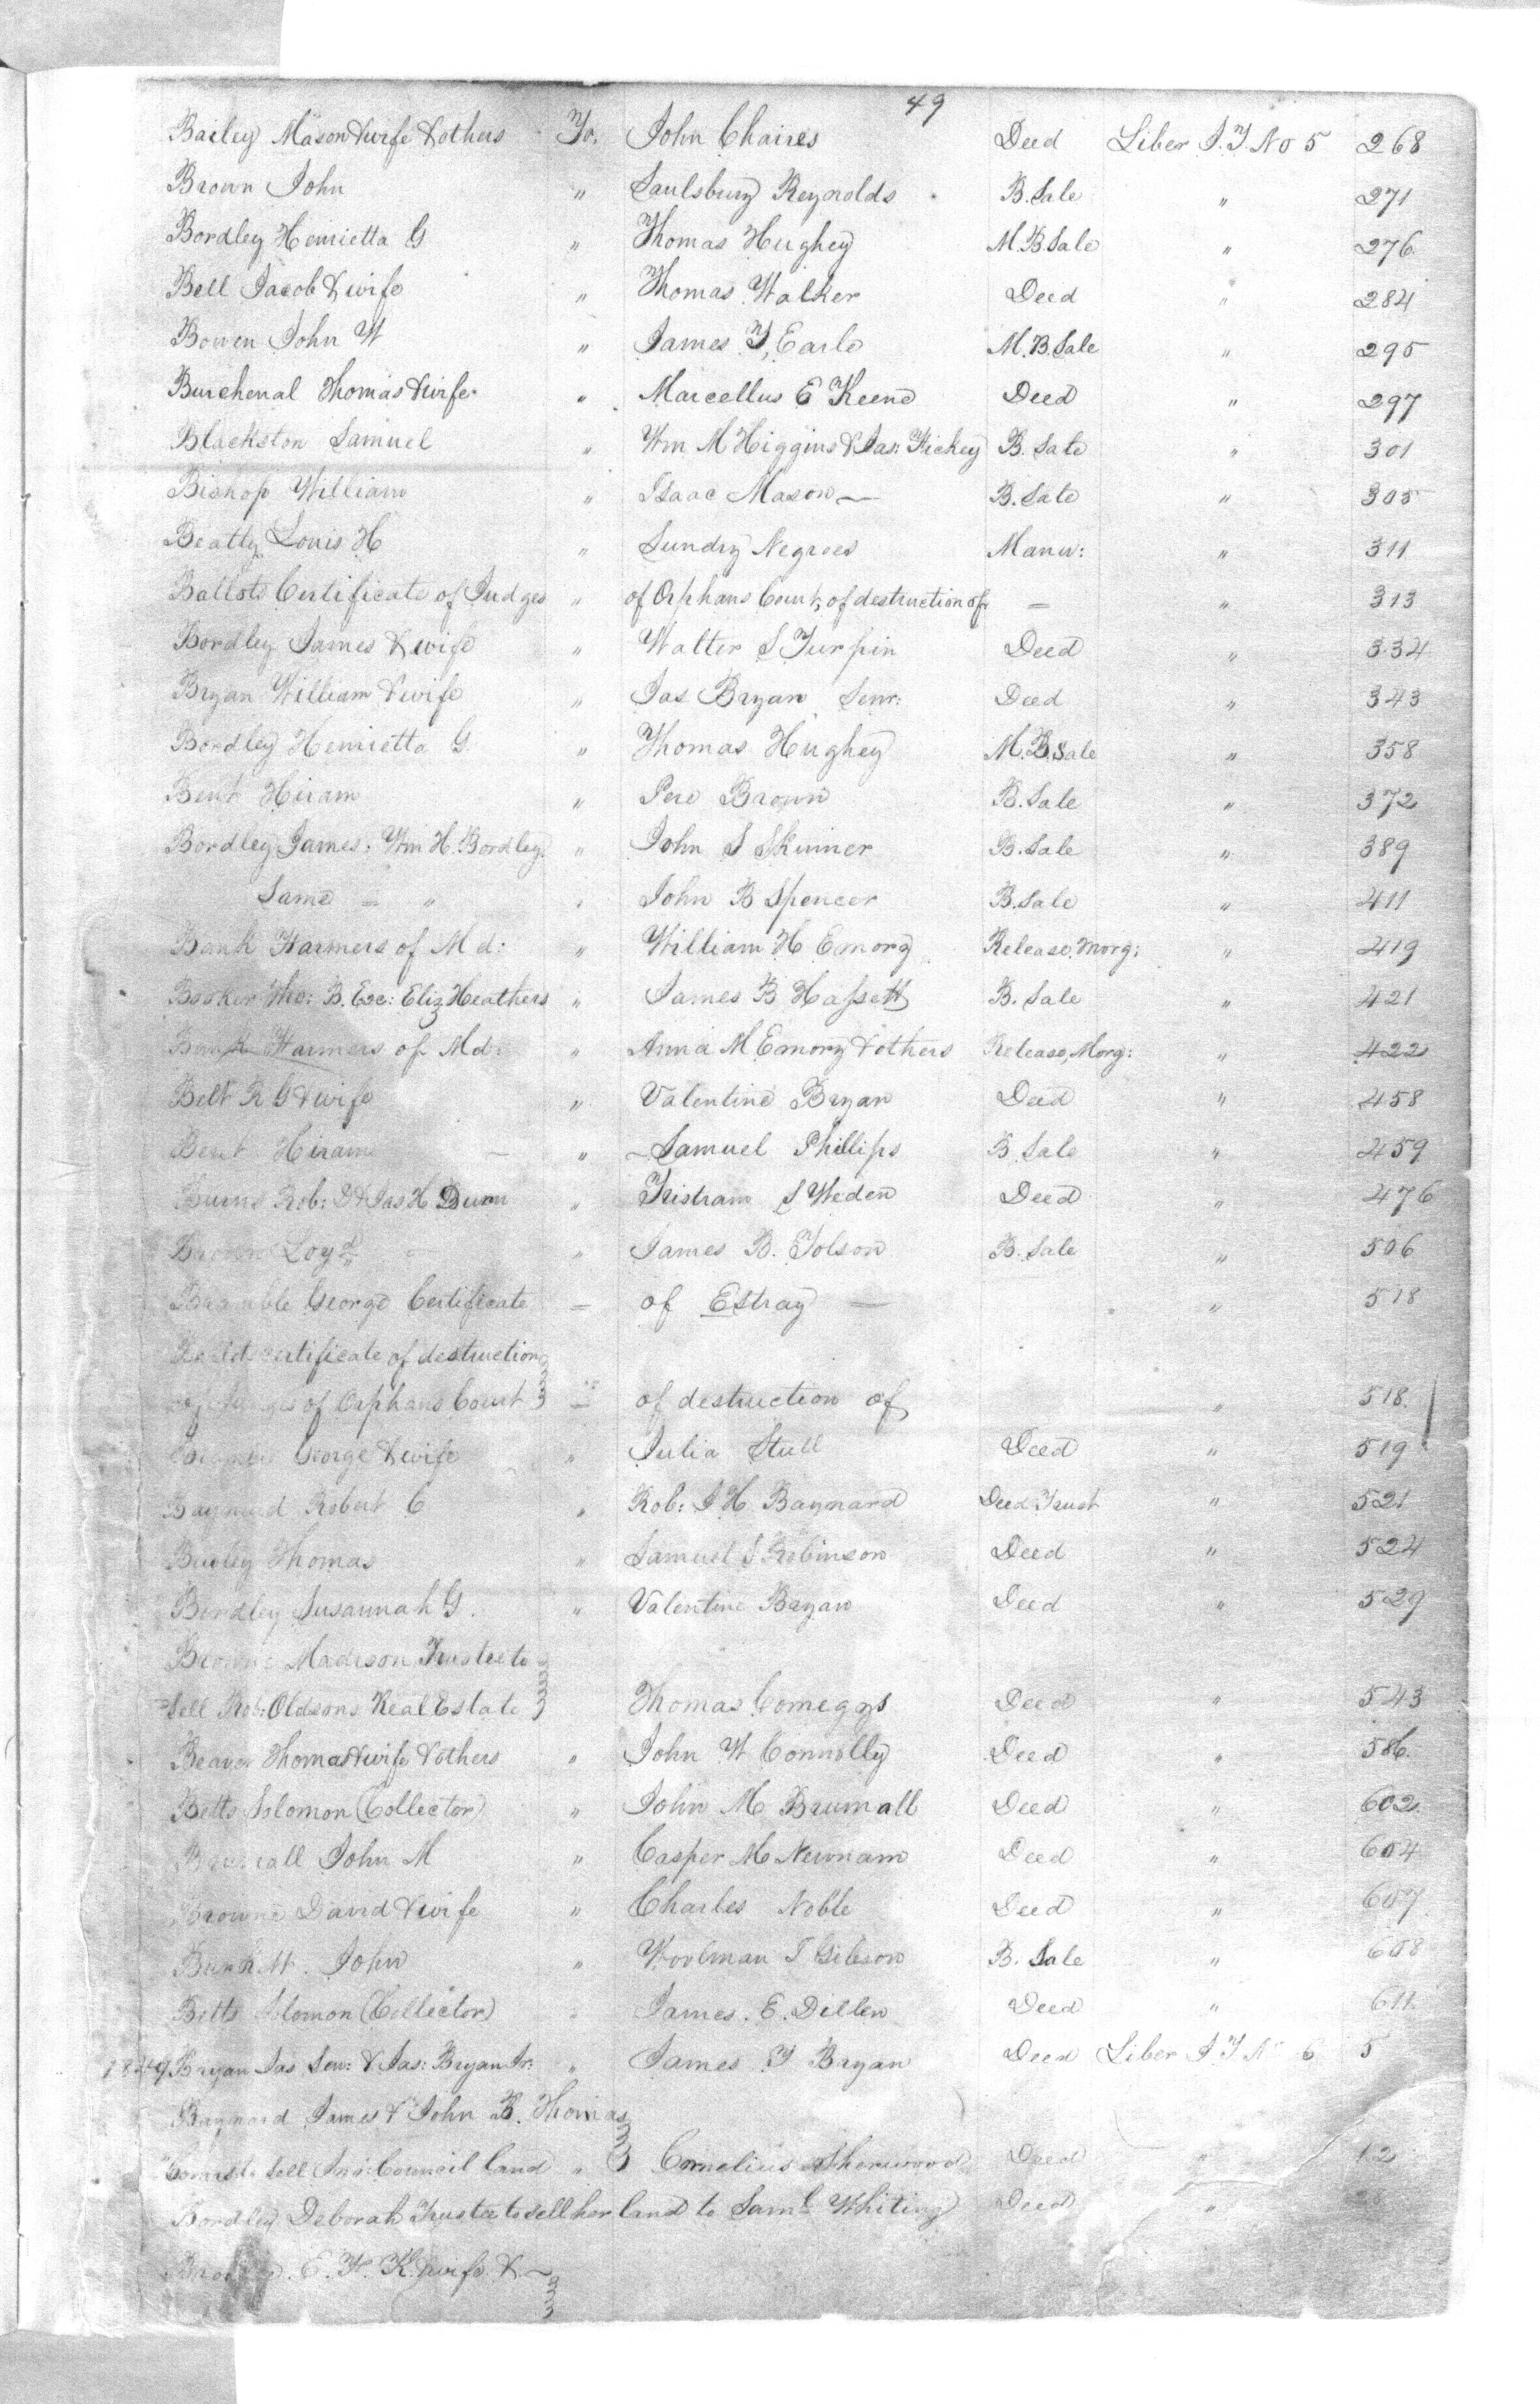 49
Bailey Mason & wife & others To. John Chaires Deed Liber J.T. No 5 268
Brown John " Saulsbury Reynolds B. Sale " 271
Bordley Henrietta G " Thomas Hughey M. B. Sale " 276
Bell Jacob & wife " Thomas Walker Deed " 284
Bowen John W " James T, Earle M. B. Sale " 295
Burchenal Thomas & wife " Marcellus E Keene Deed " 297
Blackston Samuel " Wm M Higgins & Jas: Hickey B. Sale " 301
Bishop William " Isaac Mason — B. Sale " 305
Beatty Louis H " Sundry Negroes Manu: " 311
Ballots Certificate of Judges " of Orphans Court, of destruction of — " 313
Bordley James & wife " Walter S Turpin Deed " 334
Bryan William & wife " Jas Bryan Senr: Deed " 343
Bordley Henrietta G. " Thomas Hughey M. B. Sale " 358
Bent Hiram " Pere Brown B. Sale " 372
Bordley James: Wm H. Bordley " John S Skinner B. Sale " 389
Same = " " John B Spencer B. Sale " 411
Bank Farmers of Md: " William H Emory Release, Morg: " 419
Booker Tho: B. Exc: Eliz Heathers " James B Hassett B. Sale " 421
Bank Farmers of Md: " Anna M Emory & others Release, Morg: " 422
Belt R G & wife " Valentine Bryan Deed " 458
Bent Hiram — " Samuel Phillips B Sale " 459
Burns Rob: & Jas H Dunn " Tristram S Weden Deed " 476
Brown Loyd " James B. Tolson B. Sale " 506
Bramble George Certificate = of Estray — " 518
certificate of destruction
of Judges of Orphans Court = of destruction of " 518.
George & wife " Julia Stull Deed " 519
Baynard Robert C " Rob: J H Baynard Deed Trust " 521
Thomas " Samuel S Robinson Deed " 524
Bordley Susannah G. " Valentine Bryan Deed " 529
Browne Madison Trustee to
Sell Rob: Oldsons Real Estate Thomas Comegys Deed " 543
Beaver Thomas & wife & others " John W Connolly Deed " 586.
Betts Solomon (Collector) " John M Brumall Deed " 602
Brumall John M " Casper M Newnam Deed " 604
Browne David & wife " Charles Noble Deed " 607
John " Woolman J Gibson B. Sale " 608
Betts Solomon (Collector) " James. E. Dillen Deed " 611
1849 Bryan Jas Sen: & Jas: Bryan Jr: " James T Bryan Deed Liber J T No 6 5
Baynard James & John B. Thomas
to sell Council land " Cornelius Sherwood Deed " 12
Bordley Deborah Trustee to sell her land to Saml Whiting Deed "
E. F. K. & wife & —